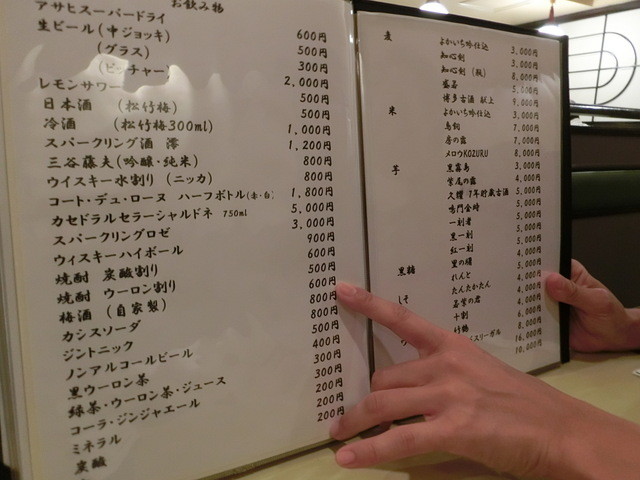 お飲み物
アサヒスーパードライ
生ビール(中ジョッキ) 600円
(グラス) 500円
(ピッチャー) 300円
レモンサワー 2,000円
日本酒 (松竹梅) 500円
冷酒 (松竹梅300ml) 500円
スパークリング酒 澪 1,000円
三谷藤夫(吟醸・純米) 1,200円
ウイスキー水割り (ニッカ) 800円
コート・デュ・ローヌ ハーフボトル(赤・白) 800円
カセドラルセラーシャルドネ 750ml 1,800円
スパークリングロゼ 5,000円
ウィスキーハイボール 3,000円
焼酎 炭酸割り 900円
焼酎 ウーロン割り 600円
梅酒 (自家製) 500円
カシスソーダ 600円
ジントニック 800円
ノンアルコールビール 800円
黒ウーロン茶 500円
緑茶・ウーロン茶・ジュース 400円
コーラ・ジンジャエール 300円
ミネラル 300円
炭酸 200円
200円
200円
麦 よかいち吟仕込 3,000円
知心剣 3,000円
知心剣 (瓶) 8,000円
5,000円
博多古酒 献上 9,000円
米 よかいち吟仕込 3,000円
鳥飼 7,000円
房の露 7,000円
メロウKOZURU 8,000円
芋 黒霧島 3,000円
4,000円
久耀 7年貯蔵古酒 5,000円
鳴門金時 5,000円
一刻者 5,000円
黒一刻 5,000円
紅一刻 5,000円
4,000円
黒糖 れんと 3,000円
しそ たんたかたん 4,000円
4,000円
十割 6,000円
8,000円
16,000円
10,000円